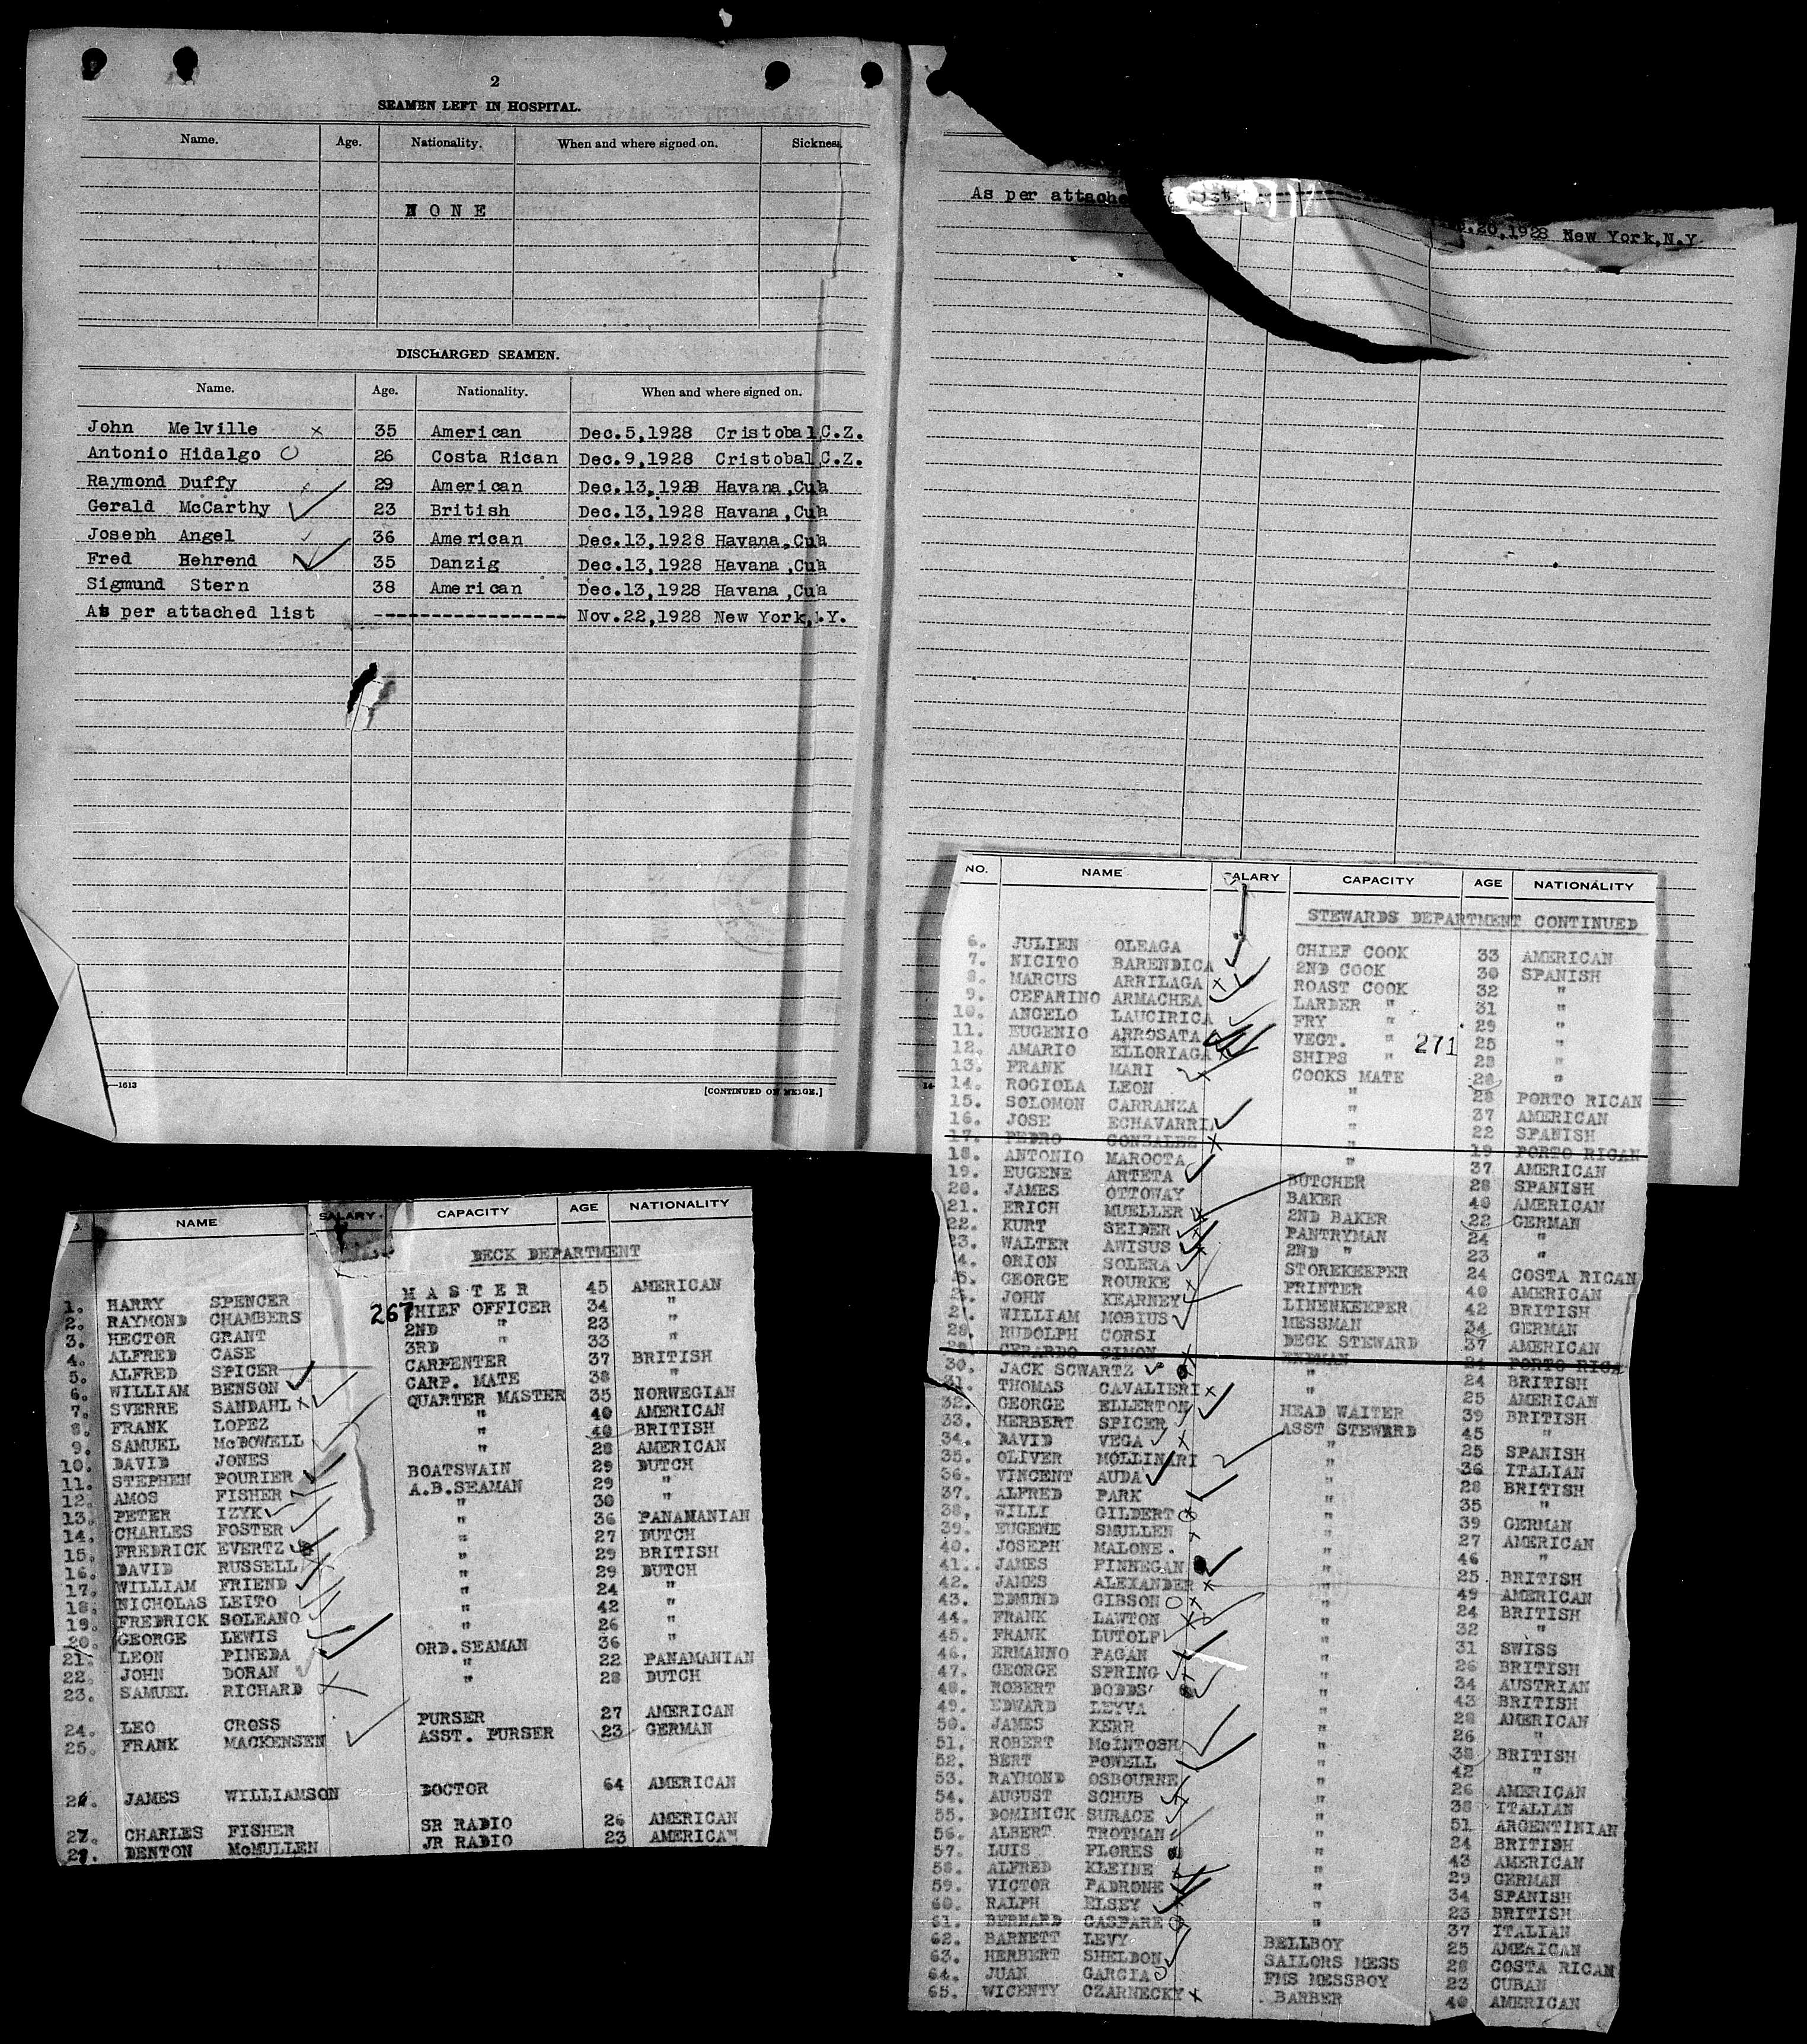 2
SEAMEN LEFT IN HOSPITAL.
Name. Age. Nationality. When and where signed on. Sickness.
NONE
DISCHARGED SEAMEN.
Name. Age. Nationality. When and where signed on.
John Melville 35 American Dec.5,1928 Cristobal C.Z.
Antonio Hidalgo 26 Costa Rican Dec.9,1928 Cristobal C.Z.
Raymond Duffy 29 American Dec.13,1928 Havana,Cua
Gerald McCarthy 23 British Dec.13,1928 Havana,Cua
Joseph Angel 36 American Dec.13,1928 Havana,Cua
Fred Behrend 35 Danzig Dec.13,1928 Havana,Cua
Sigmund Stern 38 American Dec.13,1928 Havana,Cua
As per attached list ---------------- Nov.22,1928 New York, .Y.
—1613
As per attached list
.20,1928 New York,N.Y.
14-
NAME SALARY. CAPACITY AGE NATIONALITY
DECK DEPARTMENT
1. HARRY SPENCER MASTER 45 AMERICAN
267
2. RAYMOND CHAMBERS CHIEF OFFICER 34 "
3. HECTOR GRANT 2ND " 23 "
4. ALFRED CASE 3RD " 33 "
5. ALFRED SPICER CARPENTER 37 BRITISH
6. WILLIAM BENSON CARP. MATE 38 "
7. SVERRE SANDAHL QUARTER MASTER 35 NORWEGIAN
8. FRANK LOPEZ " 40 AMERICAN
9. SAMUEL McDOWELL " 40 BRITISH
10. DAVID JONES " 28 AMERICAN
11. STEPHEN POURIER BOATSWAIN 29 DUTCH
12. AMOS FISHER A.B.SEAMAN 29 "
13. PETER IZYK " 30 "
14. CHARLES FOSTER " 36 PANAMANIAN
15. FREDRICK EVERTZ " 27 DUTCH
16. DAVID RUSSELL " 29 BRITISH
17. WILLIAM FRIEND " 29 DUTCH
18. NICHOLAS LEITO " 24 "
19. FREDRICK SOLEANO " 42 "
20. GEORGE LEWIS " 26 "
21. LEON PINEDA ORD.SEAMAN 36 "
22. JOHN DORAN " 22 PANAMANIAN
23. SAMUEL RICHARD " 28 DUTCH
24. LEO CROSS PURSER 27 AMERICAN
25. FRANK MACKENSEN ASST. PURSER 23 GERMAN
26. JAMES WILLIAMSON DOCTOR 64 AMERICAN
27. CHARLES FISHER SR RADIO 26 AMERICAN
DENTON McMULLEN JR RADIO 23 AMERICAN
NO. NAME SALARY CAPACITY AGE NATIONALITY
STEWARDS DEPARTMENT CONTINUED
6. JULIEN OLEAGA CHIEF COOK 33 AMERICAN
7. NICITO BARENDICA 2ND COOK 30 SPANISH
8. MARCUS ARRILAGA ROAST COOK 32 "
9. CEFARINO ARMACHEA LARDER " 31 "
10. ANGELO LAUCIRICA FRY " 29 "
11. EUGENIO ARROSATA VEGT. " 25 "
271
12. AMARIO ELLORIAGA SHIPS " 28 "
13. FRANK MARI COOKS MATE 28 "
14. ROGIOLA LEON " 28 PORTO RICAN
15. SOLOMON CARRANZA " 37 AMERICAN
16. JOSE ECHAVARRI " 22 SPANISH
17. PEDRO GONZALEZ " 19 PORTO RICAN
18. ANTONIO MAROCTA " 37 AMERICAN
19. EUGENE ARTETA BUTCHER 28 SPANISH
20. JAMES OTTOWAY BAKER 40 AMERICAN
21. ERICH MUELLER 2ND BAKER 22 GERMAN
22. KURT SEIDER PANTRYMAN 24 "
23. WALTER AWISUS 2ND " 23 "
4. ORION SOLERA STOREKEEPER 24 COSTA RICAN
5. GEORGE ROURKE PRINTER 40 AMERICAN
2 . JOHN KEARNEY LINENKEEPER 42 BRITISH
2 . WILLIAM MOBIUS MESSMAN 34 GERMAN
28. RUDOLPH CORSI DECK STEWARD 37 AMERICAN
29. GERARDO SIMON 21 PORTO RICA
30. JACK SCWARTZ " 24 BRITISH
31. THOMAS CAVALIERI " 25 AMERICAN
32. GEORGE ELLERTON HEAD WAITER 39 BRITISH
33. HERBERT SPICER ASST STEWARD 45 "
34. DAVID VEGA " 25 SPANISH
35. OLIVER MOLLINARI " 36 ITALIAN
36. VINCENT AUDA " 28 BRITISH
37. ALFRED PARK " 35 "
38. WILLI GILDERT " 39 GERMAN
39. EUGENE SMULLEN " 27 AMERICAN
40. JOSEPH MALONE. " 46 "
41. JAMES FINNEGAN " 25 BRITISH
42. JAMES ALEXANDER " 49 AMERICAN
43. EDMUND GIBSON " 24 BRITISH
44. FRANK LAWTON " 32 "
45. FRANK LUTOLF " 31 SWISS
46. ERMANNO PAGAN " 26 BRITISH
47. GEORGE SPRING " 34 AUSTRIAN
48. ROBERT DODDS " 43 BRITISH
49. EDWARD LEYVA " 28 AMERICAN
50. JAMES KERR " 26 "
51. ROBERT McINTOSH " 38 BRITISH
52. BERT POWELL " 42 "
53. RAYMOND OSBOURNE " 26 AMERICAN
54. AUGUST SCHUB " 38 ITALIAN
55. DOMINICK SURACE " 51 ARGENTINIAN
56. ALBERT TROTMAN " 24 BRITISH
57. LUIS FLORES " 43 AMERICAN
58. ALFRED KLEINE " 29 GERMAN
59. VICTOR PADRONE " 34 SPANISH
60. RALPH ELSEY " 23 BRITISH
61. BERNARD GASPARE " 37 ITALIAN
62. BARNETT LEVY BELLBOY 25 AMERICAN
63. HERBERT SHELDON SAILORS MESS 28 COSTA RICAN
64. JUAN GARCIA FMS MESSBOY 23 CUBAN
65. WICENTY CZARNECKY BARBER 40 AMERICAN